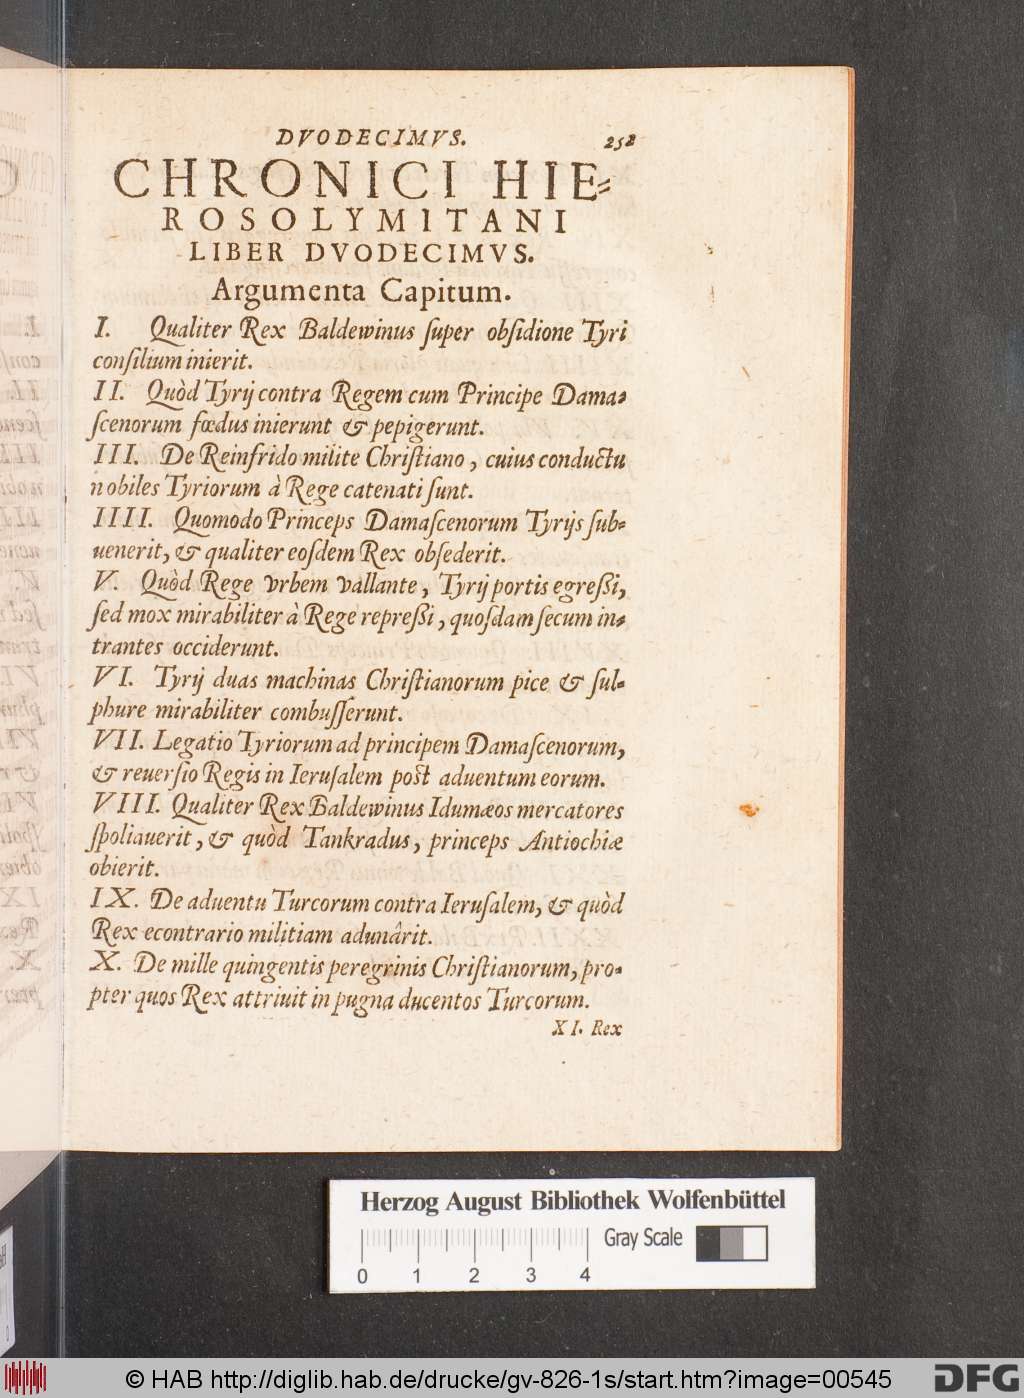 DVODECIMVS. 252
CHRONICI HIE⸗
ROSOLYMITANI
LIBER DVODECIMVS.
Argumenta Capitum.
I. Qualiter Rex Baldewinus ſuper obſidione Tyri
conſilium inierit.
II. Quòd Tyrij contra Regem cum Principe Dama⸗
ſcenorum fœdus inierunt & pepigerunt.
III. De Reinfrido milite Chriſtiano, cuius conductu
nobiles Tyriorum à Rege catenati ſunt.
IIII. Quomodo Princeps Damaſcenorum Tyrijs ſub⸗
uenerit, & qualiter eoſdem Rex obſederit.
V. Quòd Rege vrbem vallante, Tyrij portis egreßi,
ſed mox mirabiliter à Rege repreßi, quoſdam ſecum in⸗
trantes occiderunt.
VI. Tyrij duas machinas Chriſtianorum pice & ſul⸗
phure mirabiliter combuſſerunt.
VII. Legatio Tyriorum ad principem Damaſcenorum,
& reuerſio Regis in Ieruſalem poſt aduentum eorum.
VIII. Qualiter Rex Baldewinus Idumæos mercatores
ſpoliauerit, & quòd Tankradus, princeps Antiochiæ
obierit.
IX. De aduentu Turcorum contra Ieruſalem, & quòd
Rex econtrario militiam adunârit.
X. De mille quingentis peregrinis Chriſtianorum, pro⸗
pter quos Rex attriuit in pugna ducentos Turcorum.
XI. Rex
Herzog August Bibliothek Wolfenbüttel
Gray Scale
0 1 2 3 4
© HAB http://diglib.hab.de/drucke/gv-826-1s/start.htm?image=00545
DFG